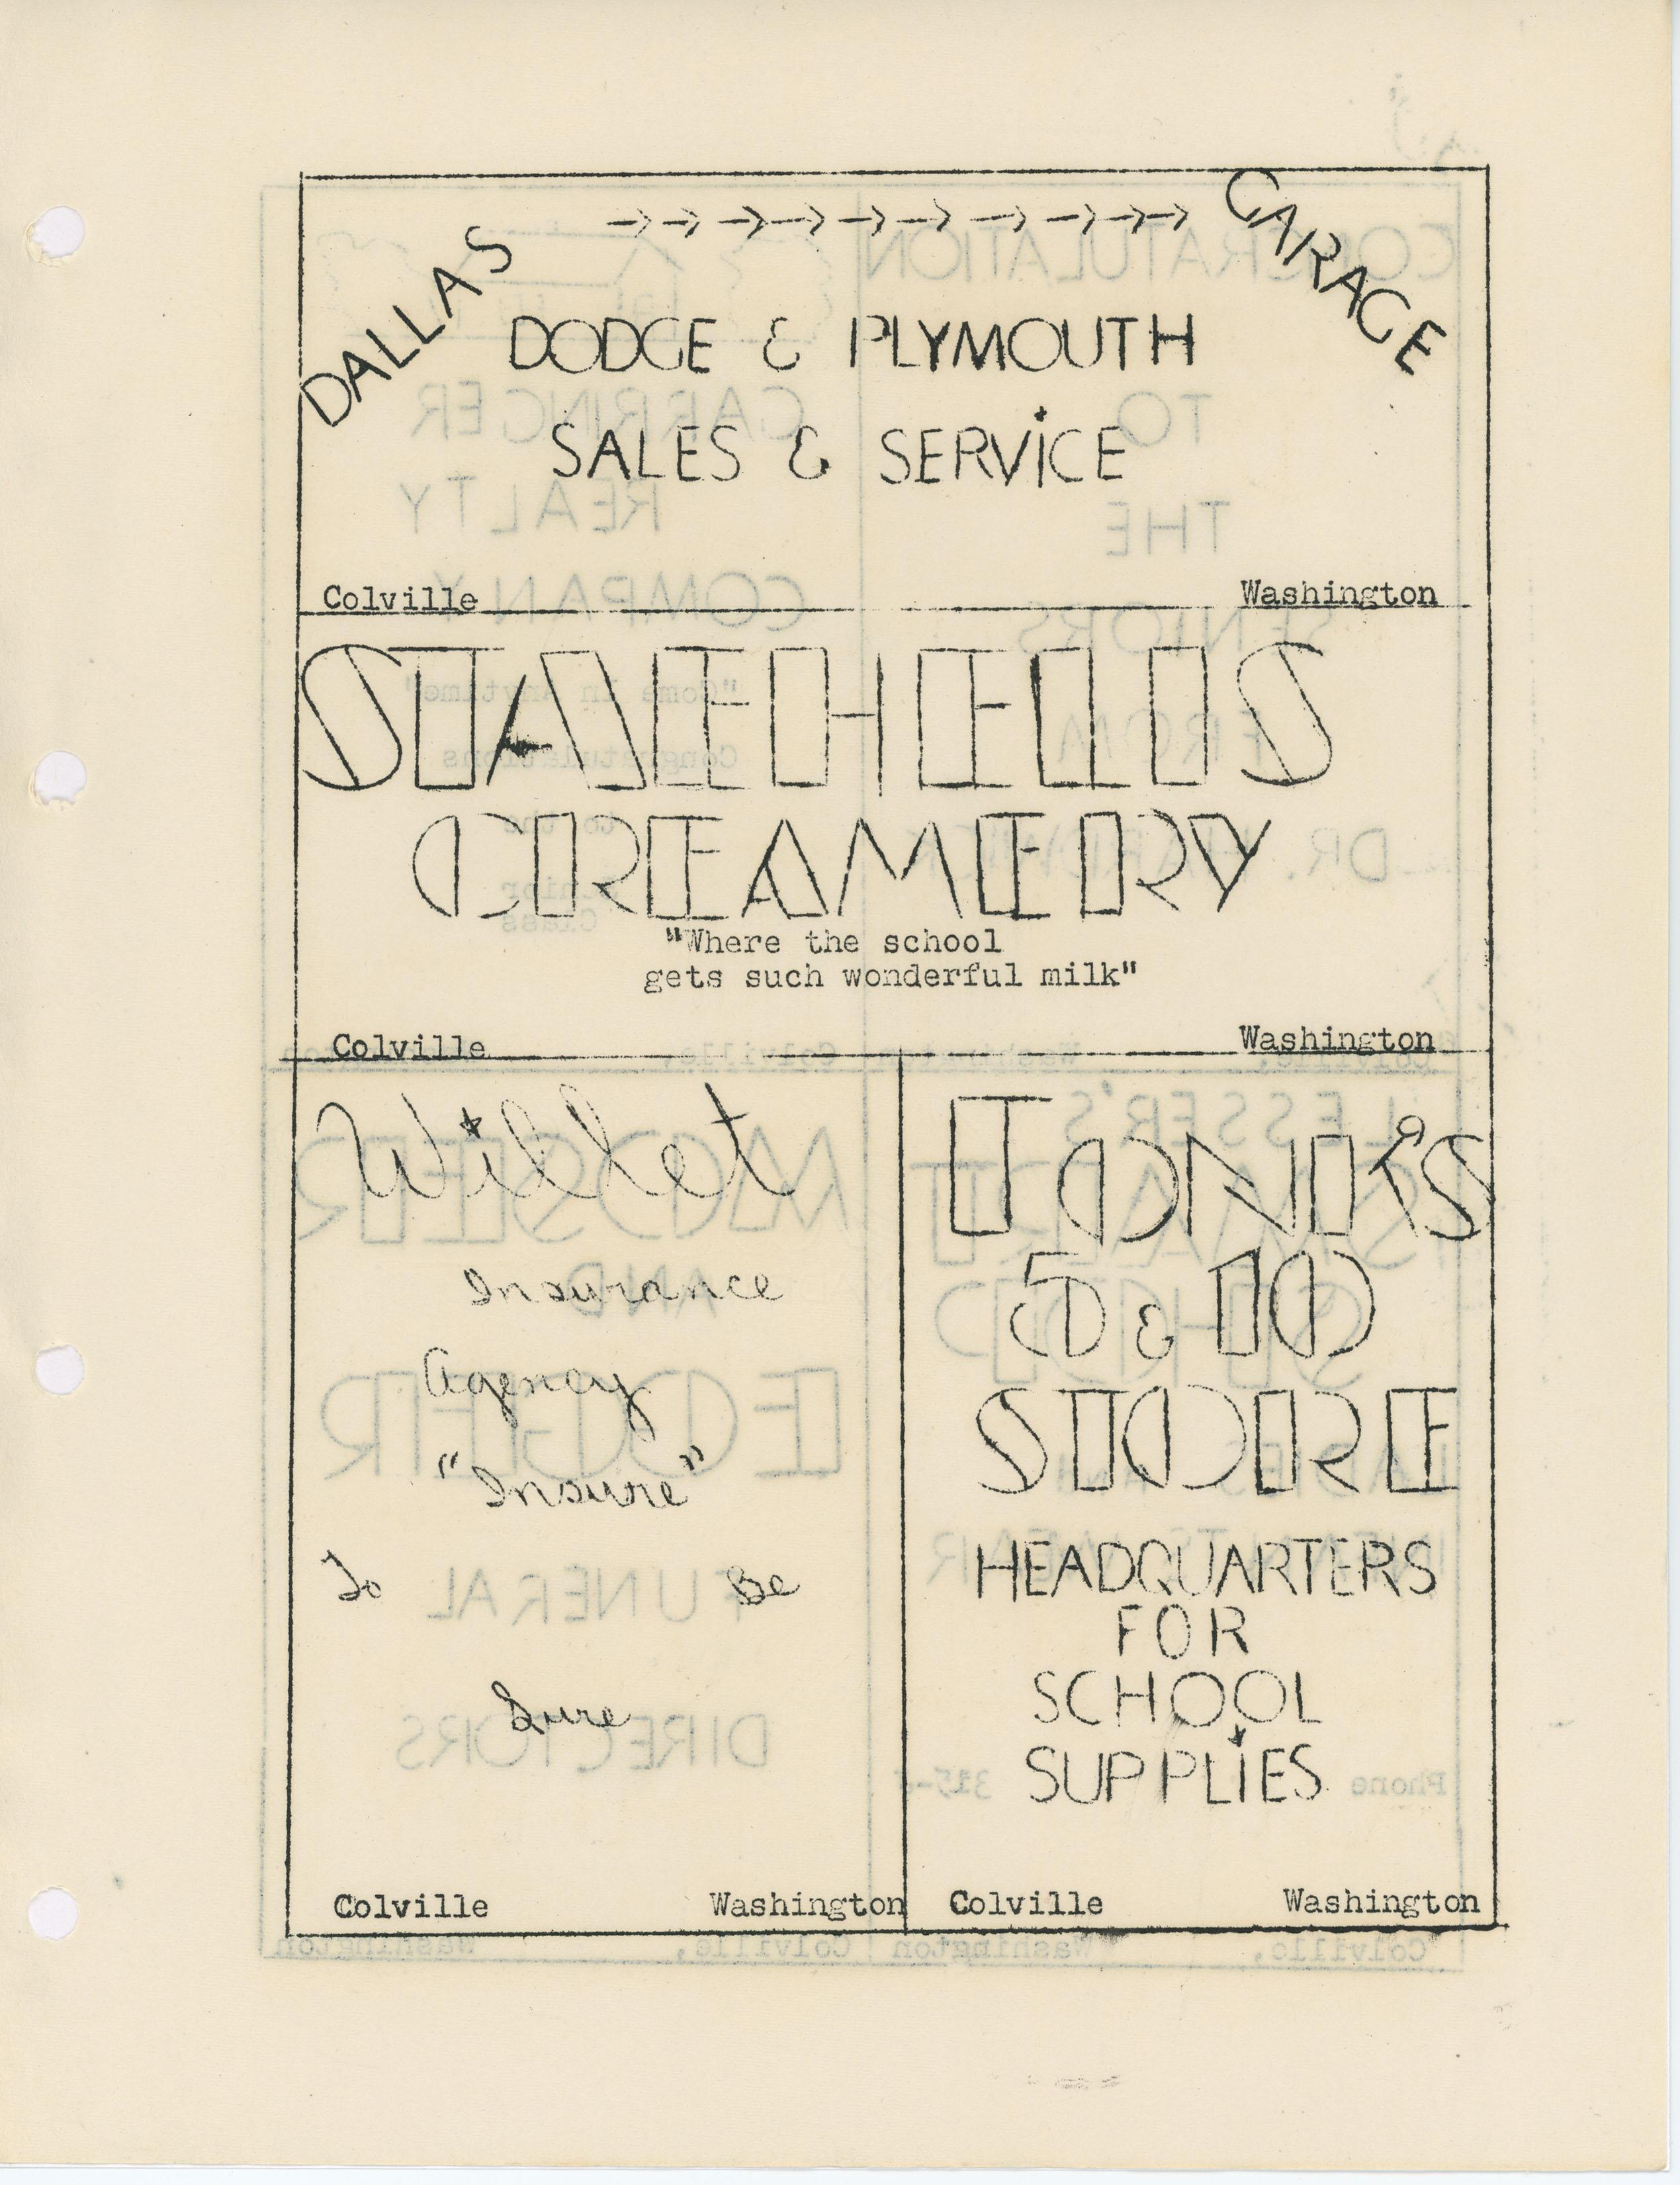 DALLAS GARAGE
DODGE & PLYMOUTH
SALES & SERViCE
Colville Washington
STAEHELIS
CREAMERY
"Where the school
gets such wonderful milk"
Colville Washington
Willet
Insurance
Agency
"Insure"
To Be
Sure
Colville Washington
TONK'S
5 & 10
STORE
HEADQUARTERS
FOR
SCHOOL
SUPPLiES
Colville Washington